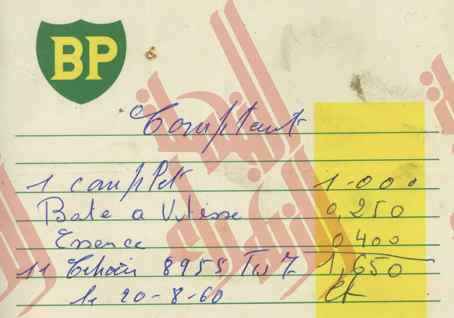 BP
Comptant
1 complet 1.000
Boite a Vitesse 0,250
Essence 0,400
11 Citroën 8955 Tu 7 1,650
le 20-8-60